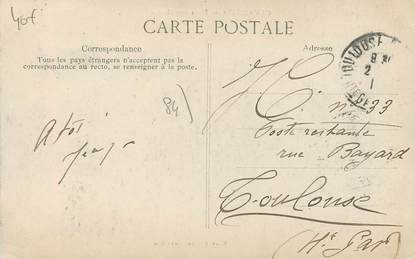 40f
CARTE POSTALE
Correspondance
Tous les pays étrangers n'acceptent pas la
correspondance au recto, se renseigner à la poste.
Adresse
TOULOUSE
84
H. C. n° 33
Poste restante
rue Bayard
Toulouse
(Hte Gar)
A toi